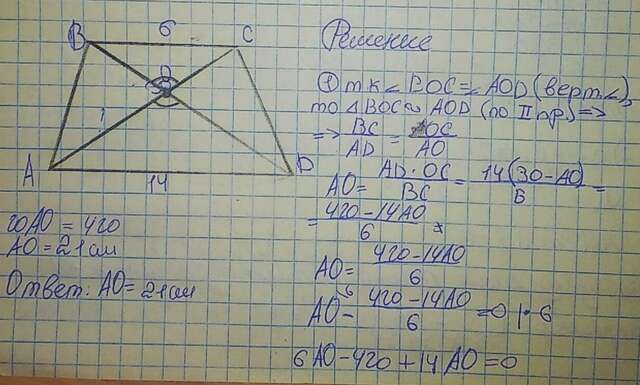 B 6 C
O
A 14 D
20AO = 420
AO = 21 см
Ответ: AO = 21 см
Решение
① т.к ∠BOC = ∠AOD (верт.∠),
то △BOC ~ AOD (по II пр) =>
=> BC/AD = OC/AO
AO = AD·OC/BC = 14(30-AO)/6 =
= 420-14AO/6
AO = 420-14AO/6
AO - 420-14AO/6 = 0 |·6
6AO - 420 + 14AO = 0